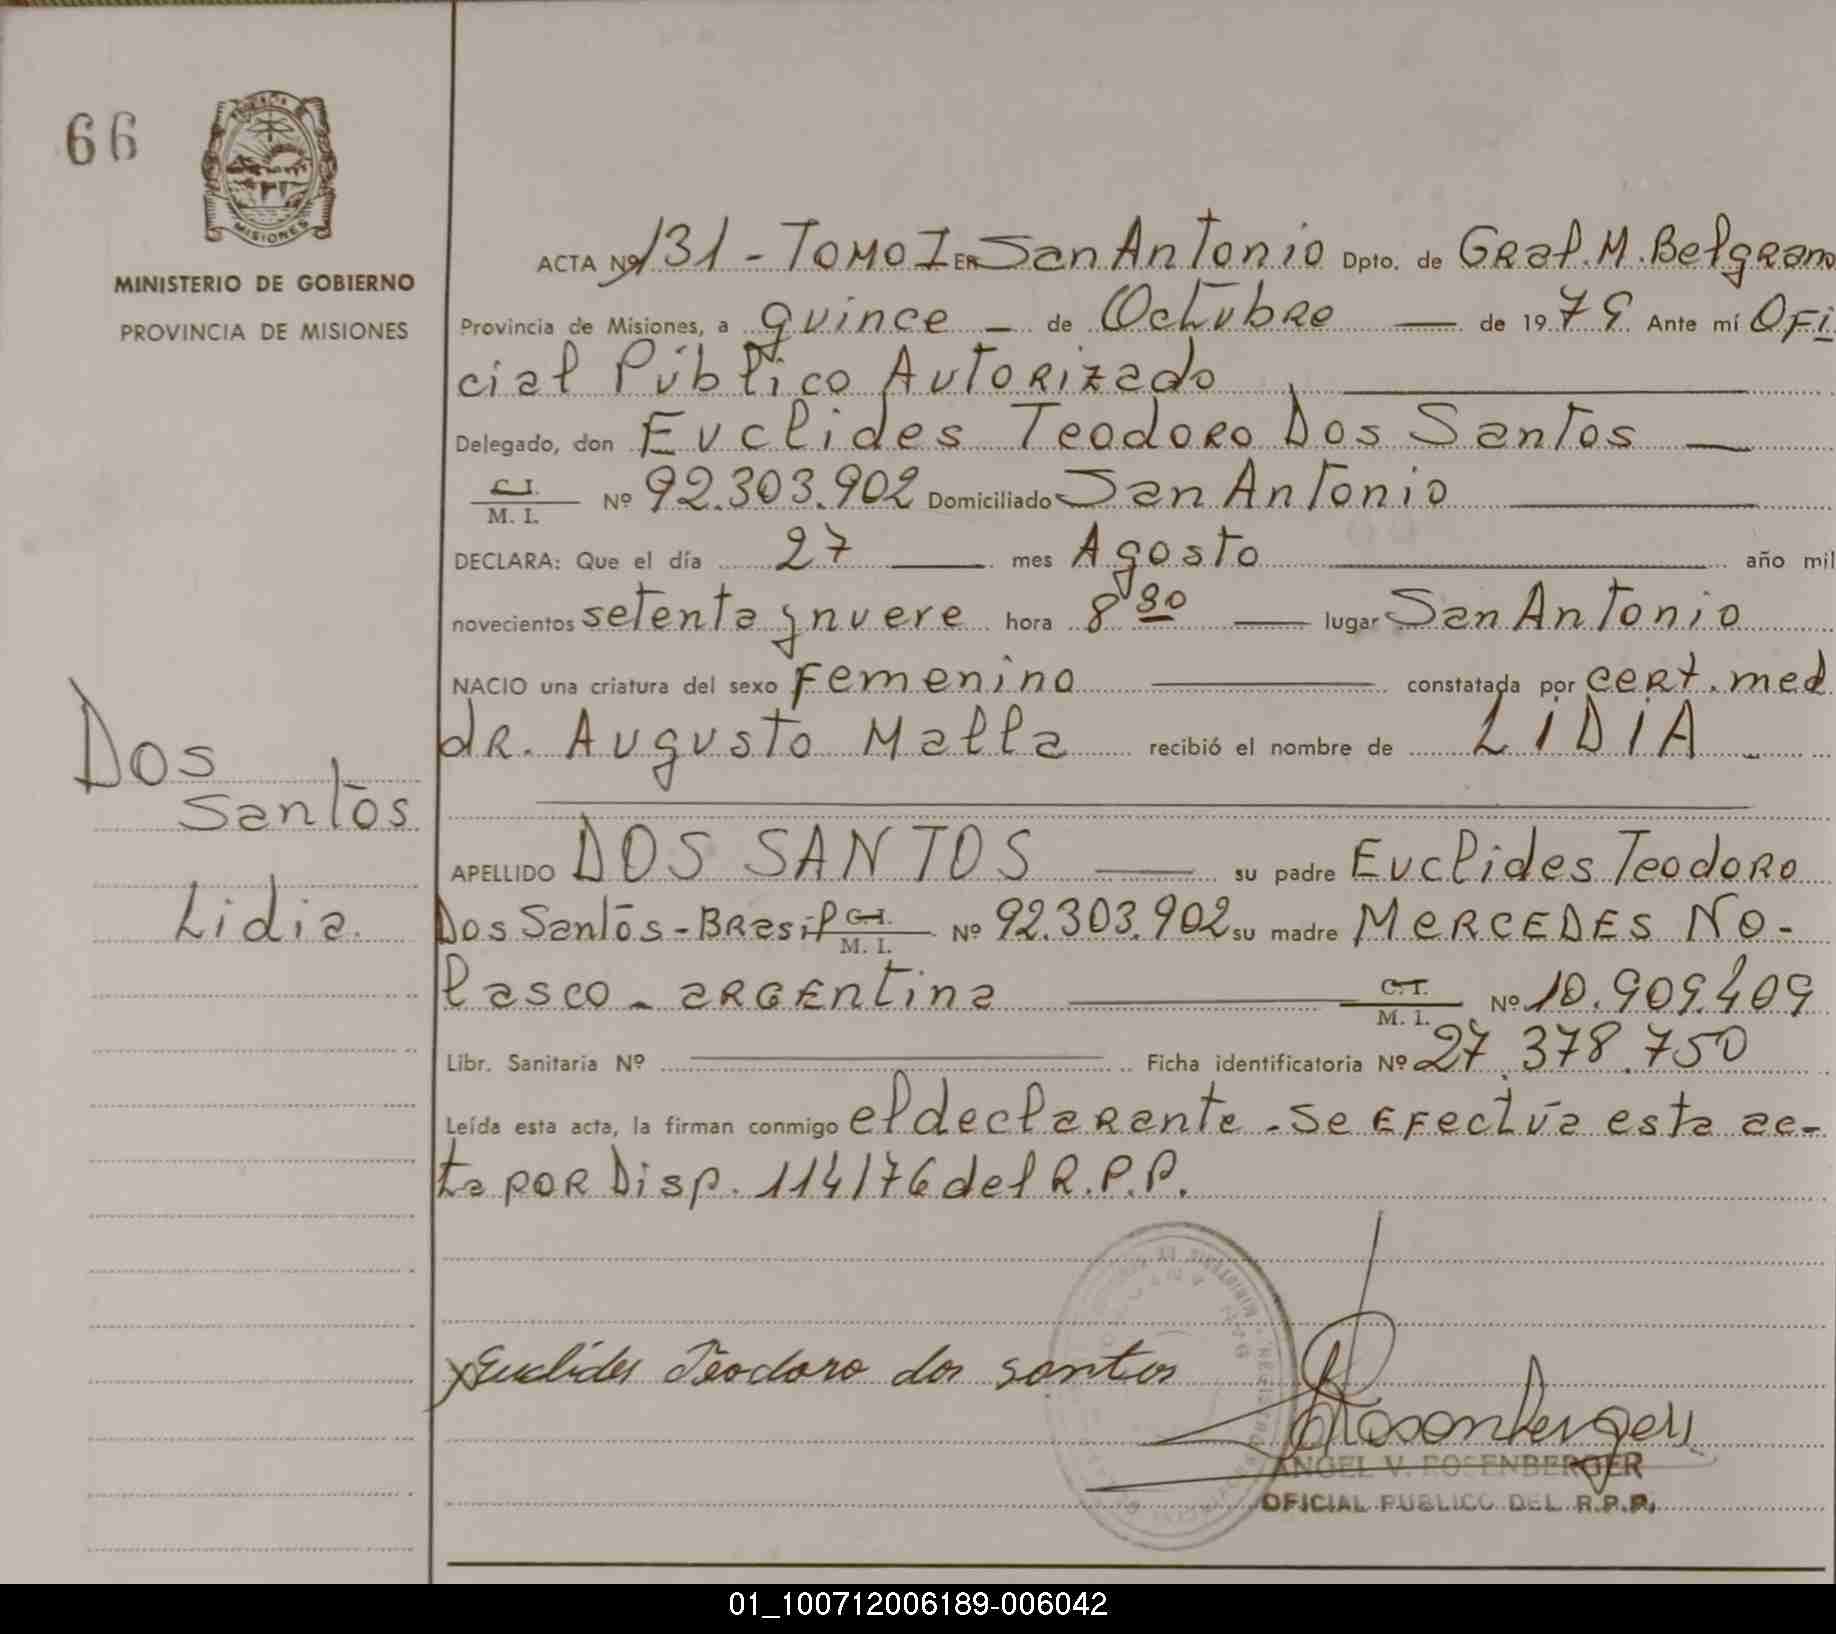 66
MISIONES
MINISTERIO DE GOBIERNO
PROVINCIA DE MISIONES
Dos
Santos
Lidia.
ACTA Nº 131 - TOMO I EN San Antonio Dpto. de Gral. M. Belgrano
Provincia de Misiones, a quince de Octubre de 1979 Ante mí Ofi
cial Público Autorizado
Delegado, don Euclides Teodoro Dos Santos
C.I. M. I. Nº 92.303.902 Domiciliado San Antonio
DECLARA: Que el día 27 mes Agosto año mil
novecientos setenta y nueve hora 8 30 lugar San Antonio
NACIO una criatura del sexo Femenino constatada por cert. med
dR. Augusto Malla recibió el nombre de LIDIA
APELLIDO DOS SANTOS su padre Euclides Teodoro
Dos Santos - Brasil C.I. M. I. Nº 92.303.902 su madre MERCEDES NO-
lasco - ARGENtina C.I. M. I. Nº 10.909.409
Libr. Sanitaria Nº Ficha identificatoria Nº 27.378.750
Leída esta acta, la firman conmigo el declarante. Se EFectúa esta ac-
ta POR Disp. 114/76 del R.P.P.
Euclides Teodoro dos santos
Rosenberger
ANGEL V. ROSENBERGER
OFICIAL PUBLICO DEL R.P.P.
01_100712006189-006042